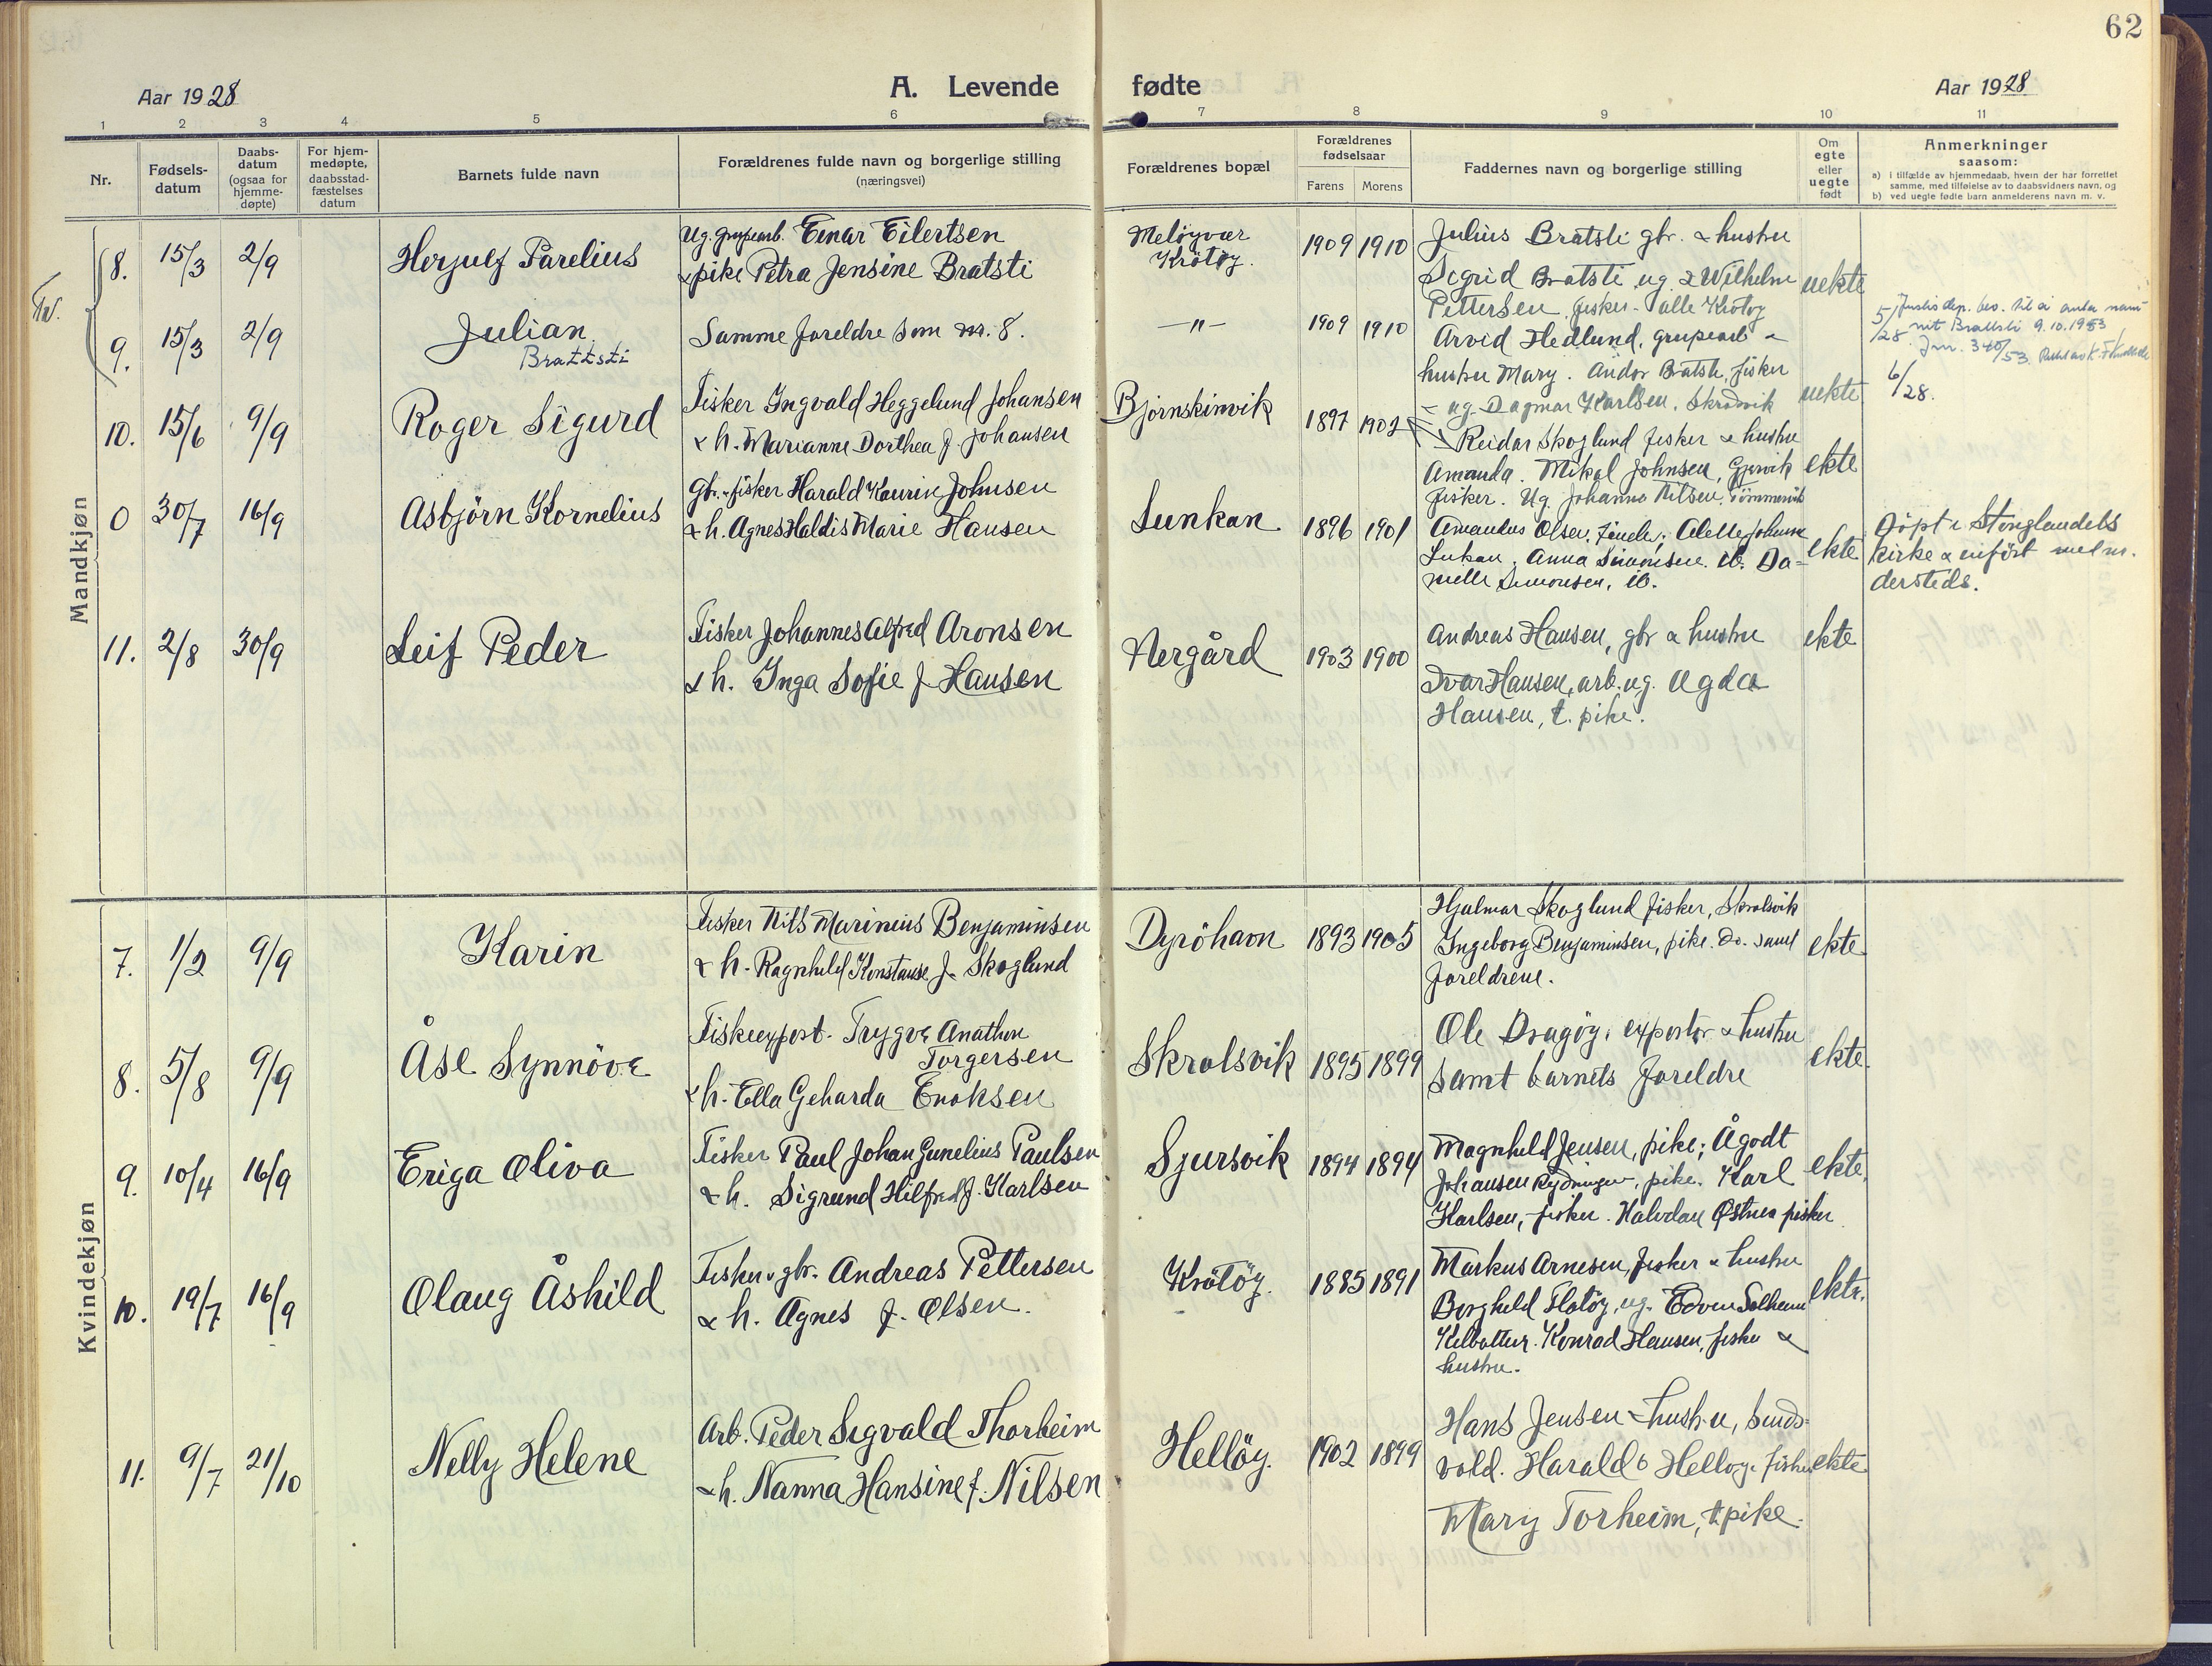 62
Aar 1928
A. Levende fødte
Aar 1928
1 2 3 4 5 6 7 8 9 10 11
Nr.
Fødsels-
datum
Daabs-
datum
(ogsaa for
hjemme-
døpte)
For hjem-
medøpte,
daabsstad-
fæstelses
datum
Barnets fulde navn
Forældrenes fulde navn og borgerlige stilling
(næringsvei)
Forældrenes bopæl
Forældrenes
fødselsaar
Farens Morens
Faddernes navn og borgerlige stilling
Om
egte
eller
uegte
født
Anmerkninger
saasom:
a) i tilfælde av hjemmedaab, hvem der har forrettet
samme, med tilføielse av to daabsvidners navn, og
b) ved uegte fødte barn anmelderens navn m. v.
Mandkjøn
Tv.
8. 15/3 2/9
Herjulf Parelius
Ug. grupearb. Einar Eilertsen
& pike Petra Jensine Bratsti
Meløyvær
Krötöy.
1909 1910
Julius Bratsli gbr. & hustru
Sigrid Bratsti ug. & Wilhelm
Pettersen, fisker - alle Krötöy
uekte
5/28
9. 15/3 2/9
Julian
Brattsti
Samme foreldre som nr. 8.
—"—
1909 1910
Arvid Hedlund, grupearb &
hustru Mary. Andor Bratsti, fisker
ug. Dagmar Karlsen, Skrolsvik
uekte
Justisdep. bev. til å anta navnet
Brattsti 9.10.1953
Jnr. 340/53.
6/28.
10. 15/6 9/9
Roger Sigurd
Fisker Ingvald Heggelund Johansen
& h. Marianne Dorthea f Johansen
Bjørnskinvik
1897 1902
Reidar Skoglund fisker & hustru
Amanda. Mikal Johnsen, Gjervik
fisker. Ug. Johanna Nilsen, Tömmervik
ekte
0 30/7 16/9
Asbjörn Kornelius
Gbr. & fisker Harald Kaurin Johnsen
& h. Agnes Haldis Marie Hansen
Lunkan
1896 1901
Amandus Olsen,
Anna Simonsen. ib. Da-
nielle Simonsen, ib.
ekte
Döpt i Stonglandets
kirke & innfört med nr.
dersteds.
11. 2/8 30/9
Leif Peder
Fisker Johannes Alfred Aronsen
& h. Inga Sofie f Hansen
Nergård
1903 1900
Andreas Hansen, gbr & hustru
Ivar Hansen, arb. ug. Agda
Hansen, t. pike.
ekte
Kvindekjøn
7. 1/2 9/9
Karin
Fisker Nils Marinius Benjaminsen
& h. Ragnhild Konstanse f. Skoglund
Dyröhavn
1893 1905
Hjalmar Skoglund fisker, Skrolsvik
Ingeborg Benjaminsen, pike. Do. samt
foreldrene.
ekte
8. 5/8 9/9
Åse Synnöve
Fiskeexport. Trygve Anathon
Torgersen
& h. Ella Geharda Enoksen
Skrolsvik
1895 1899
Ole Dragöy, exportör & hustru
samt barnets foreldre
ekte.
9. 10/4 16/9
Eriga Oliva
Fisker Paul Johan Gunelius Paulsen
& h. Sigrund Hilfred f. Karlsen
Sjursvik
1894 1894
Magnhild Jensen, pike; Ågodt
Johansen Rydningen, pike. Karl
Karlsen, fisker. Halvdan Østnes fisker
ekte.
10. 19/7 16/9
Olaug Åshild
Fisker & gbr. Andreas Pettersen
& h. Agnes f. Olsen.
Krötöy.
1885 1891
Markus Arnesen, fisker & hustru
Borghild Flatöy, ug. Edvin Solheim
Kilbotten. Konrad Hansen, fisker &
hustru.
ekte.
11. 9/7 21/10
Nelly Helene
Arb. Peder Sigvald Thorheim
& h. Nanna Hansine f. Nilsen
Hellöy.
1902 1899
Hans Jensen & hustru, Sands-
vold. Harald Helloy, fisker
Mary Torheim, t. pike.
ekte